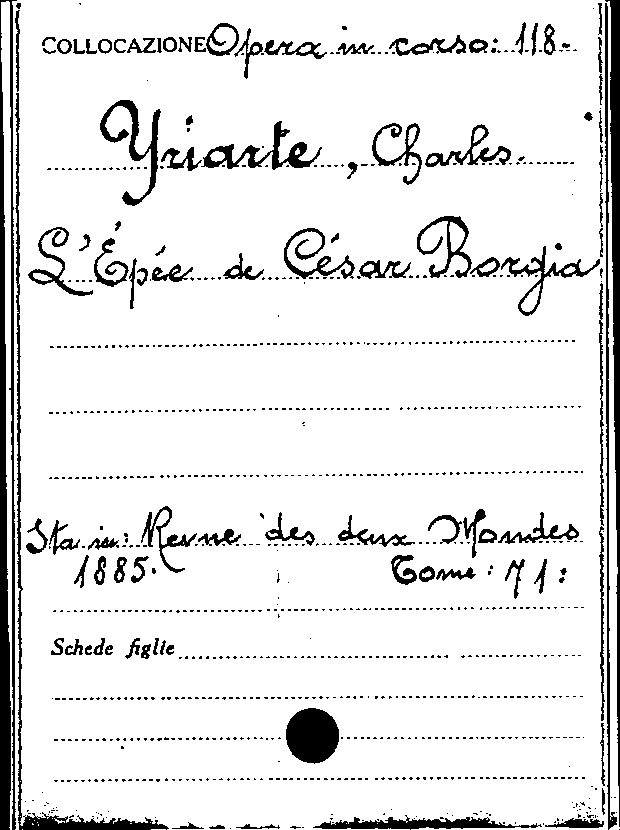 COLLOCAZIONE Opera in corso: 118.
Yriarte, Charles.
L'Épée de César Borgia.
Sta in: Revue des deux Mondes
1885. Tome: 71:
Schede figlie